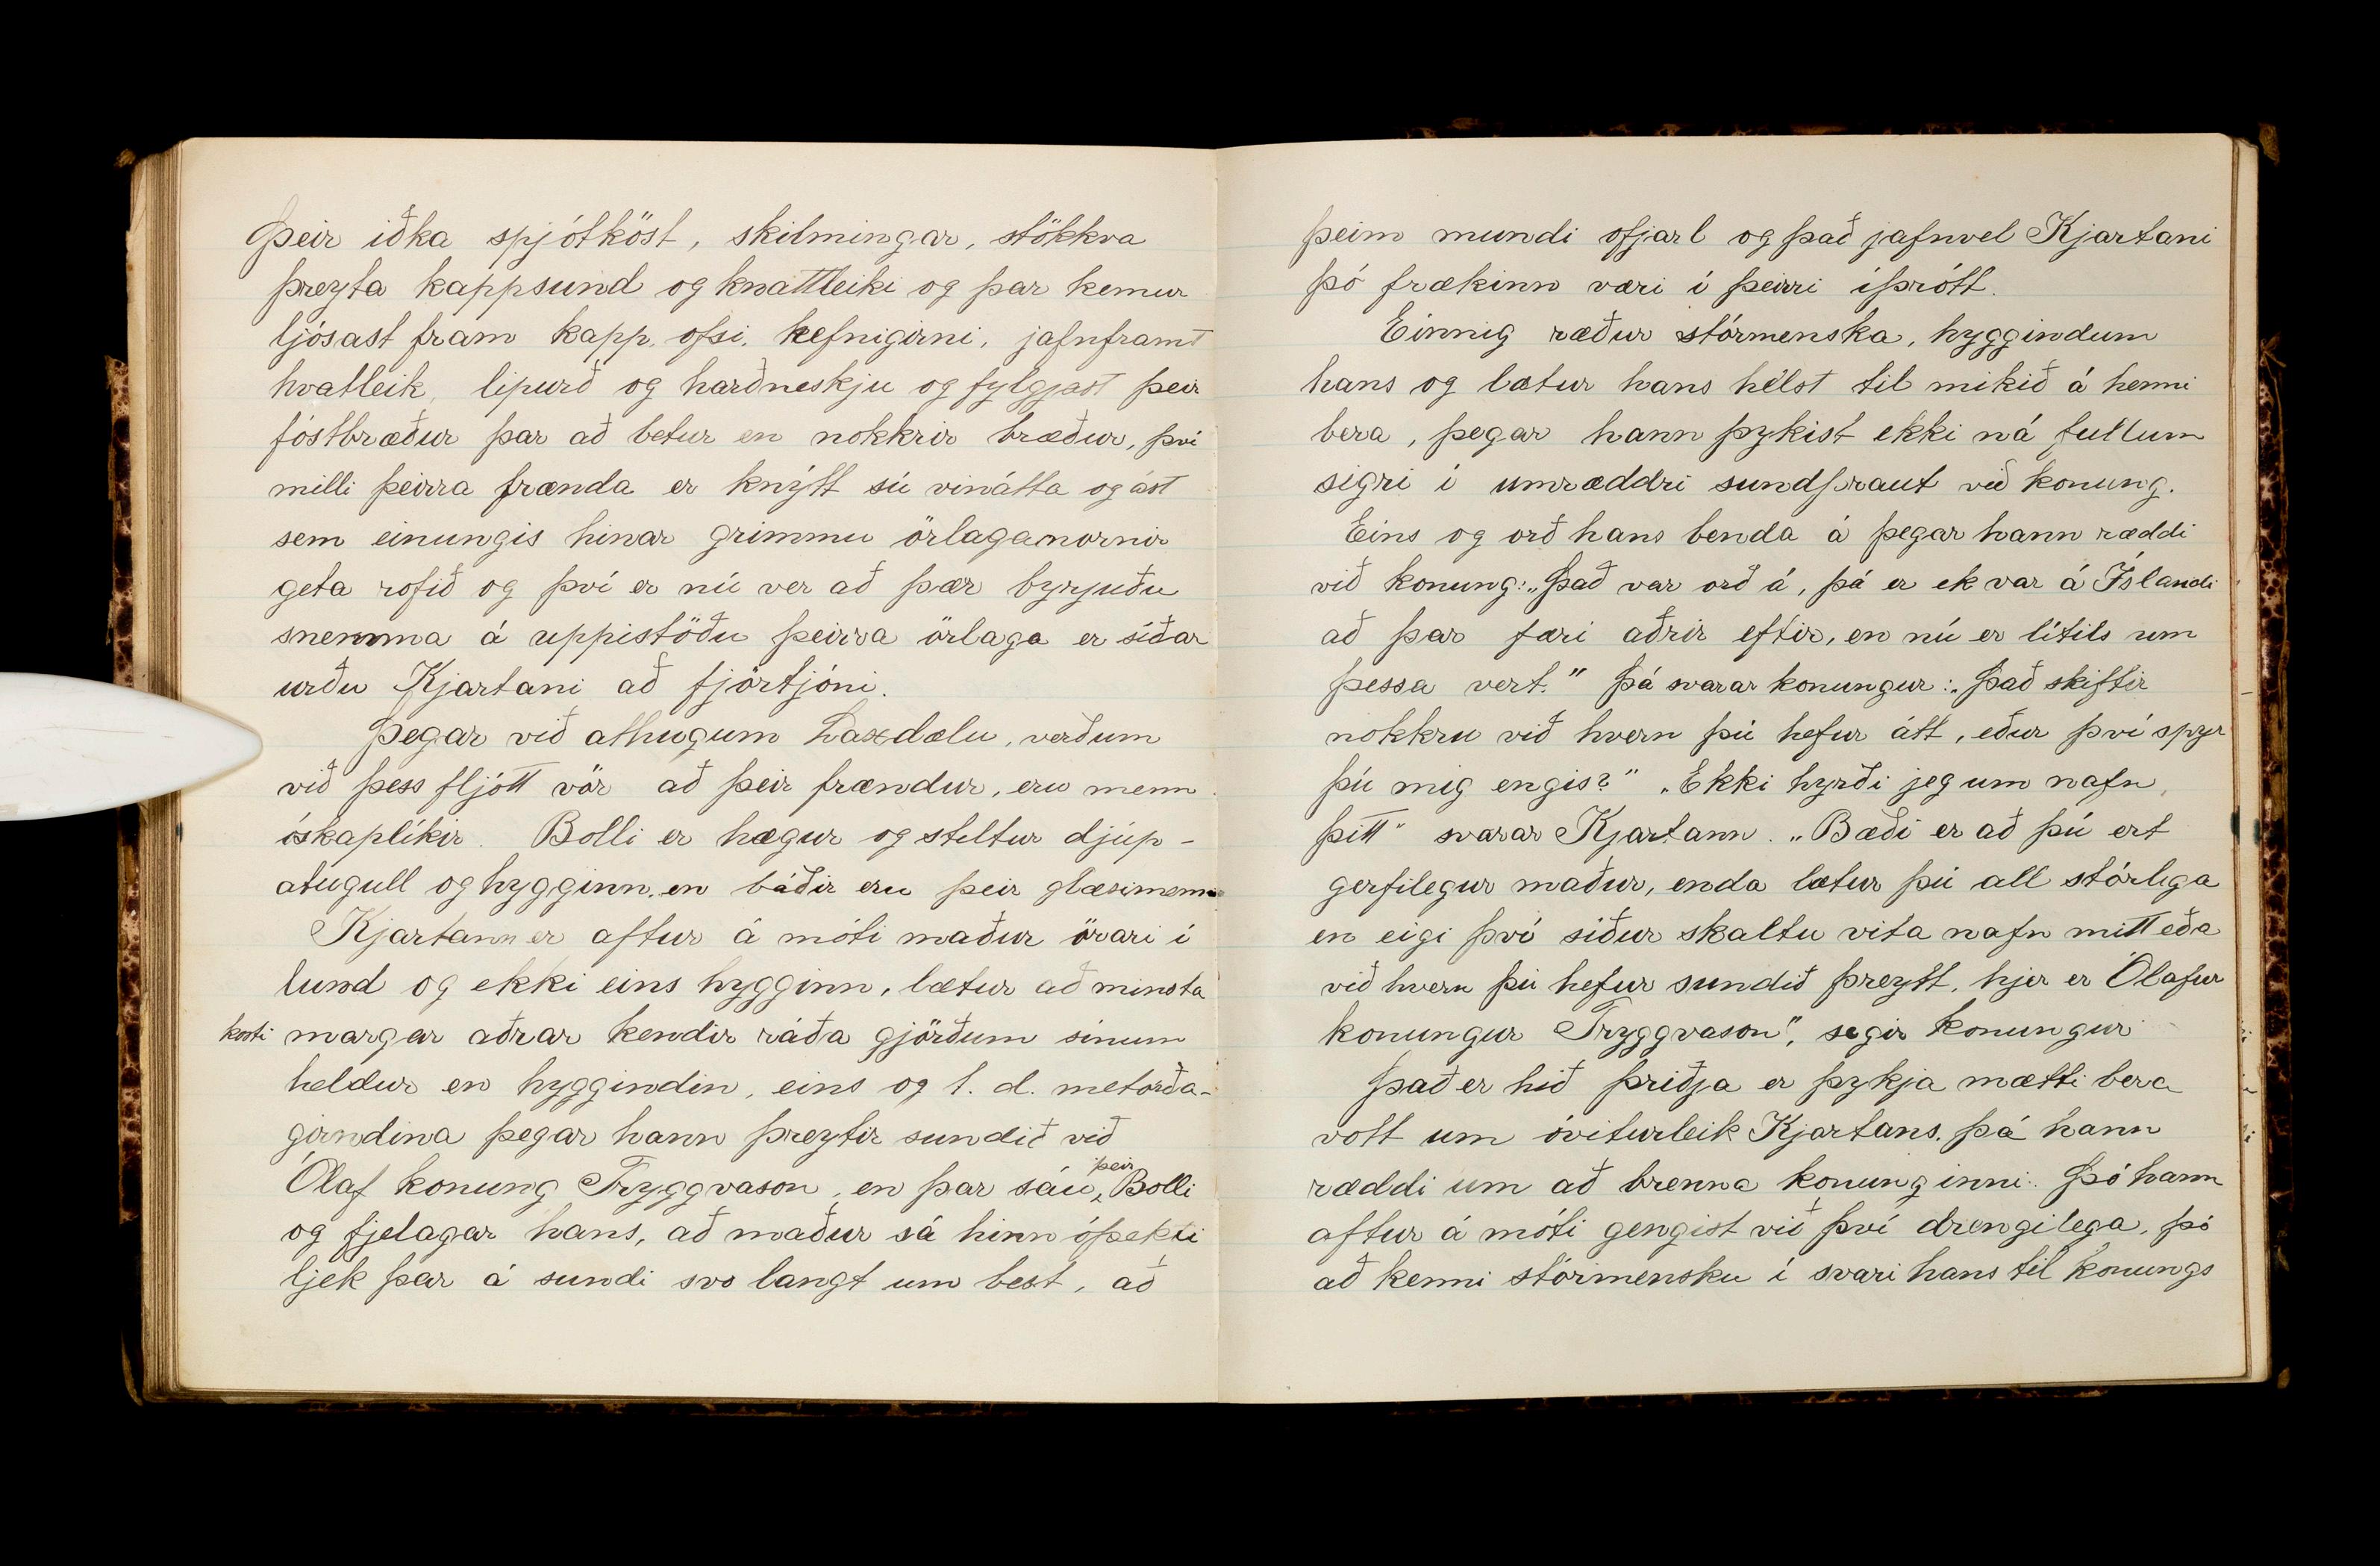 Þeir iðka spjótköst, skilmingar, stökkva
þreyta kappsund og knattleiki og þar kemur
ljósast fram kapp, ofsi, hefnigirni, jafnframt
hvatleik, lipurð og harðneskju og fylgjast þeir
fóstbræður þar að betur en nokkrir bræður, því
milli þeirra frænda er knýtt sú vinátta og ást
sem einungis hinar grimmu örlaganornir
geta rofið og því er nú ver að þær byrjuðu
snemma á uppistöðu þeirra örlaga er síðar
urðu Kjartani að fjörtjóni.
Þegar við athugum Laxdælu, verðum
við þess fljótt vör að þeir frændur, eru menn
óskaplíkir. Bolli er hægur og stiltur djúp-
atugull og hygginn, en báðir eru þeir glæsimenni
Kjartann er aftur á móti maður örari í
lund og ekki eins hygginn, lætur að minsta
kosti margar aðrar kendir ráða gjörðum sínum
heldur en hyggindin, eins og t. d. metorða-
girndina þegar hann þreytir sundið við
Ólaf konung Tryggvason, en þar sáu þeir Bolli
og fjelagar hans, að maður sá hinn óþekti
ljek þar á sundi svo langt um best, að
þeim mundi ofjarl og það jafnvel Kjartani
þó frækinn væri í þeirri íþrótt.
Einnig ræður stórmenska, hyggindum
hans og lætur hans hélst til mikið á henni
bera, þegar hann þykist ekki ná fullum
sigri í umræddri sundþraut við konung.
Eins og orð hans benda á þegar hann ræddi
við konung: „Það var orð á, þá er ek var á Íslandi
að þar færi aðrir eftir, en nú er lítils um
þessa vert." Þá svarar konungur: „Það skiftir
nokkru við hvern þú hefur átt, eður því spyr
þú mig engis?" „Ekki hyrði jeg um nafn
þitt" svarar Kjartann. „Bæði er að þú ert
gerfilegur maður, enda lætur þú all stórlega
en eigi því síður skaltu vita nafn mitt eða
við hvern þú hefur sundið þreytt, hjer er Ólafur
konungur Tryggvason", segir konungur
Það er hið þriðja er þykja mætti bera
vott um óviturleik Kjartans, þá hann
ræddi um að brenna konung inni. Þó hann
aftur á móti gengist við því drengilega, þó
að kenni stórmensku í svari hans til konungs